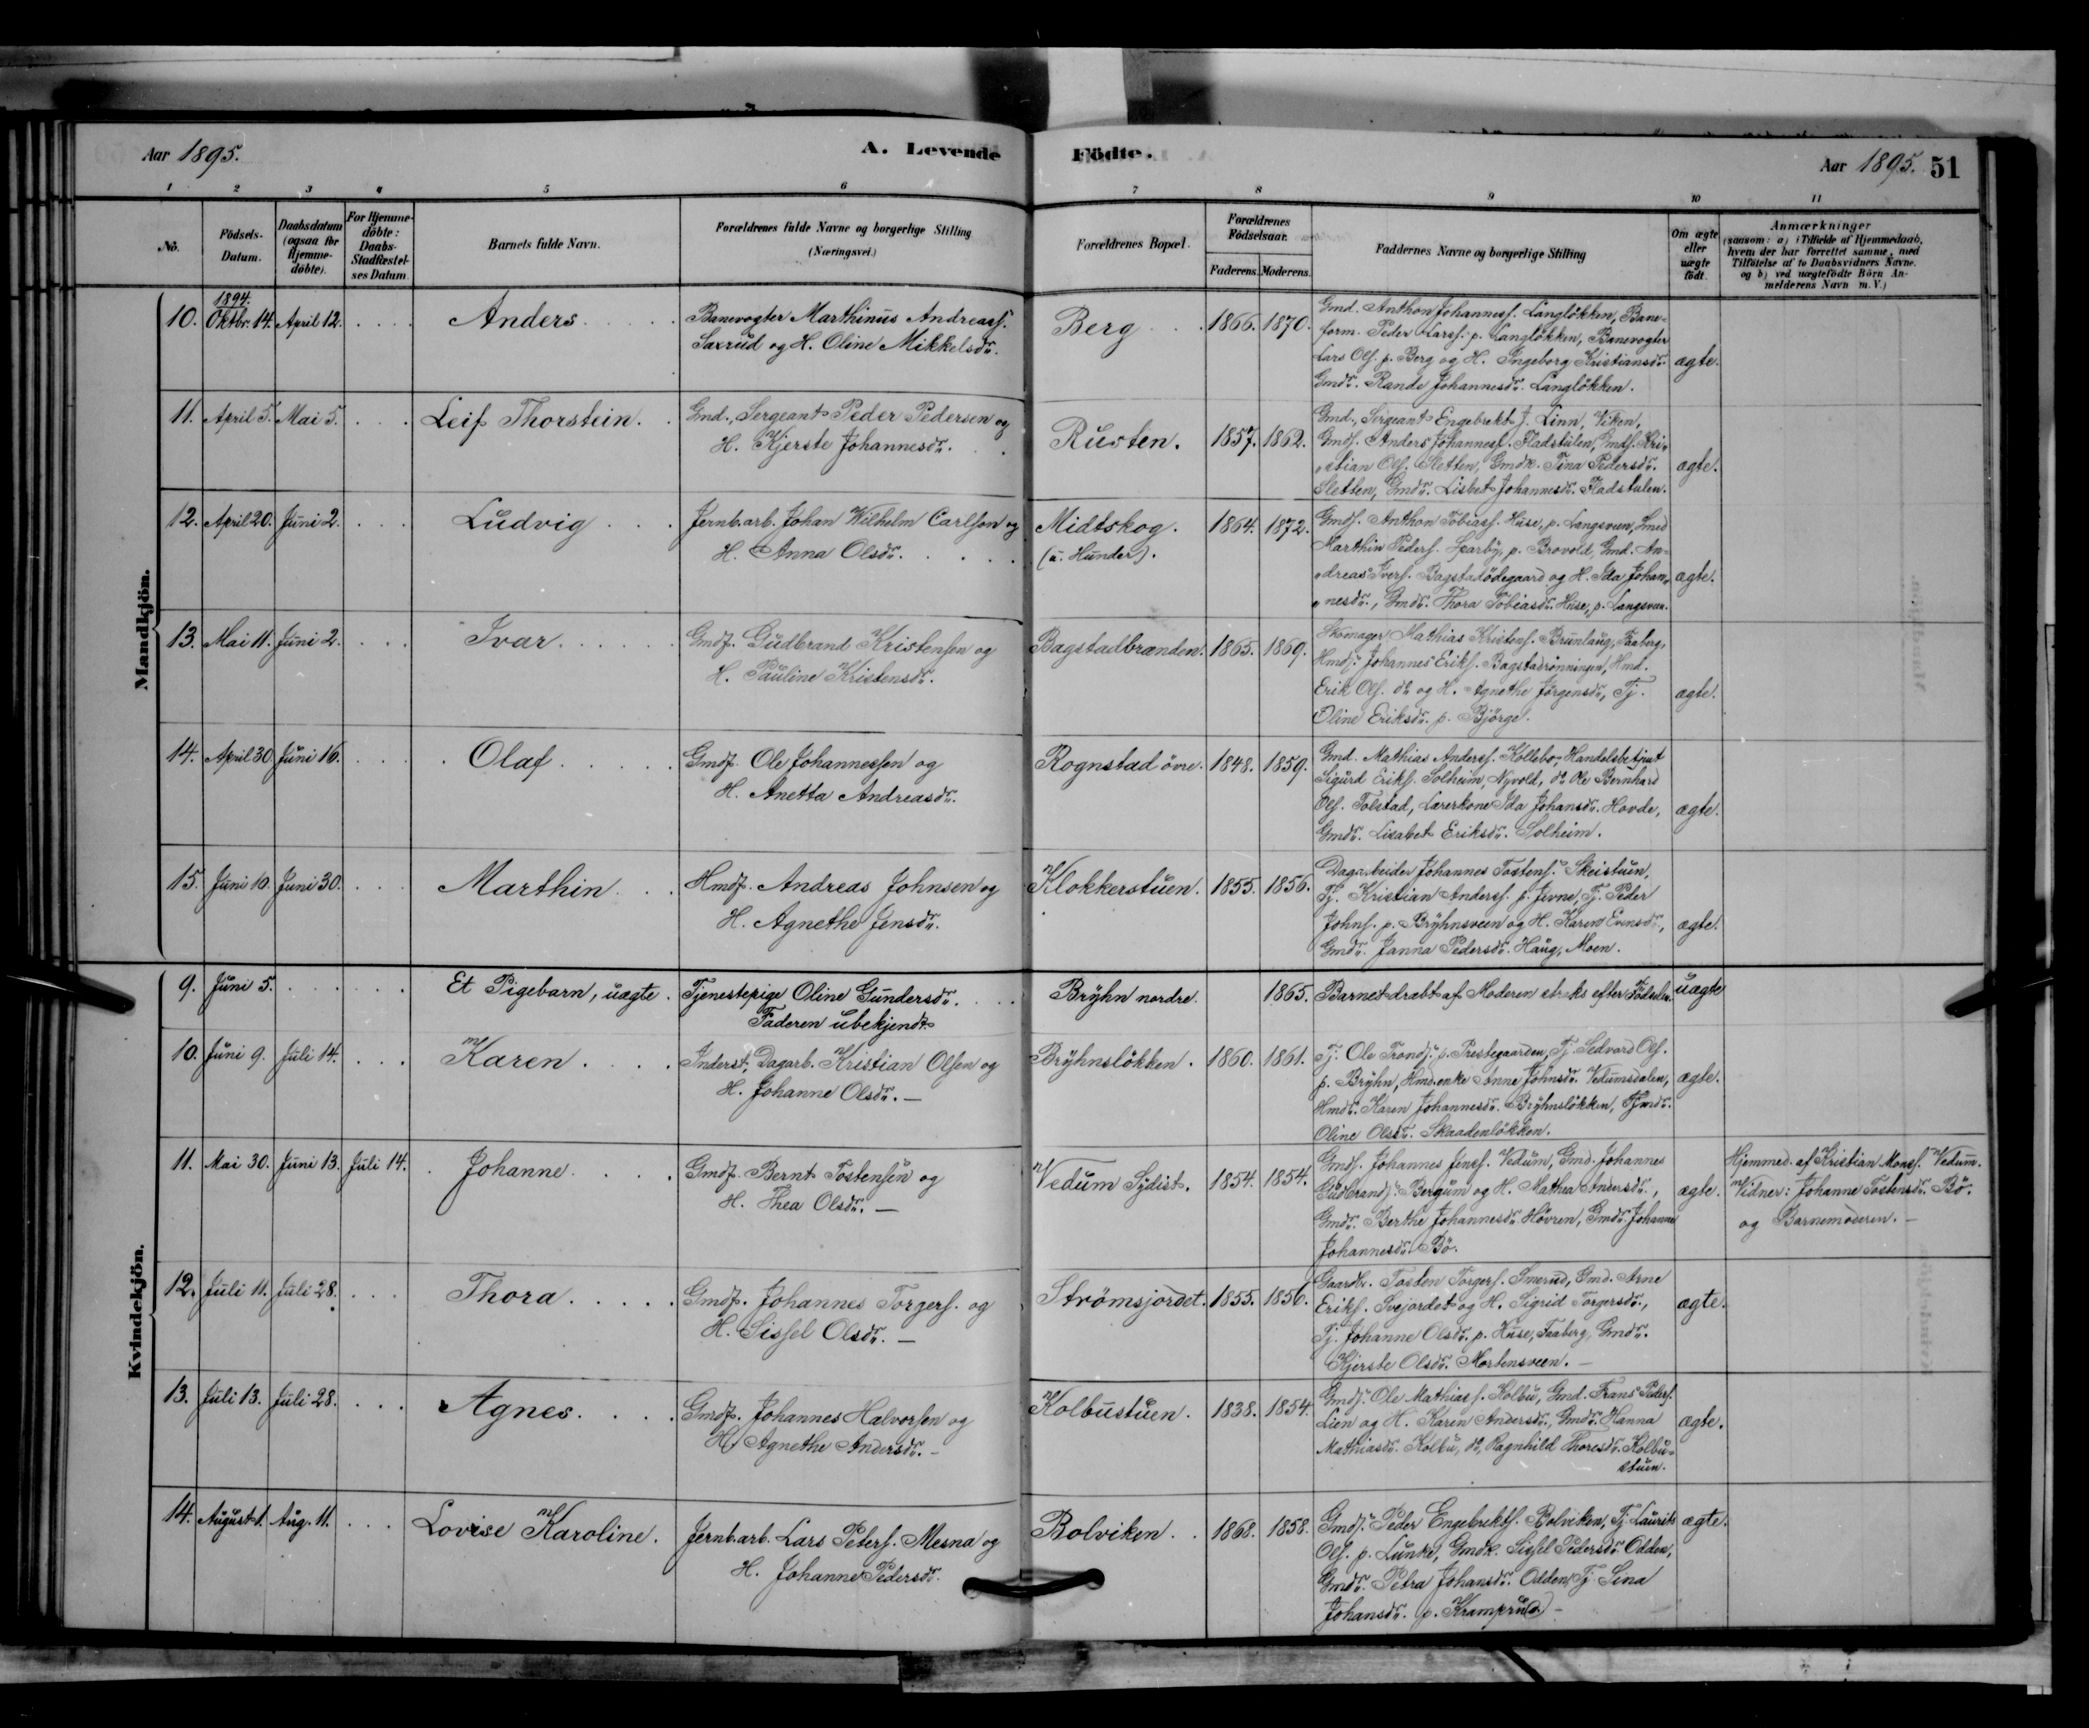 Aar 1895.
A. Levende
Födte.
Aar 1895. 51
1 2 3 4 5 6 7 8 9 10 11
Nö.
Födsels-
Datum.
Daabsdatum
(ogsaa for
Hjemme-
döbte).
For Hjemme-
döbte:
Daabs-
Stadfæstel-
ses Datum.
Barnets fulde Navn.
Forældrenes fulde Navne og borgerlige Stilling
(Næringsvei.)
Forældrenes Bopæl.
Forældrenes
Födselsaar.
Faderens. Moderens.
Faddernes Navne og borgerlige Stilling
Om ægte
eller
uægte
födt.
Anmærkninger
(saasom: a) i Tilfælde af Hjemmedaab,
hvem der har forrettet samme, med
Tilföielse af to Daabsvidners Navne.
og b) ved uægtefödte Börn An-
melderens Navn m. V.)
Mandkjön.
1894.
10. Oktbr. 14. April 12. Anders
Banevogter Marthinus Andreass.
Saxrud og H. Oline Mikkelsdr.
Berg 1866. 1870.
Gmd. Anthon Johanness. Langløkken, Bane-
form. Peder Larss. p. Langløkken, Banevogter
Lars Ols. p. Berg og H. Ingeborg Kristiansdr.
Gmdr. Rande Johannesdr. Langløkken.
ægte.
11. April 5. Mai 5. Leif Thorstein.
Gmd., Sergeant Peder Pedersen og
H. Kjerste Johannesdr.
Rusten. 1857. 1862.
Gmd., Sergeant Engebrekt J. Linn, Viken,
Gmds. Anders Johanness. Fladstulen, Gmds. Kri-
stian Ols. Sletten, Gmdk. Tina Pedersdr.
Sletten, Gmdr. Lisbet Johannesdr. Fladstulen.
ægte.
12. April 20. Juni 2. Ludvig
Jernb.arb. Johan Wilhelm Carlson og
H. Anna Olsdr.
Midtskog.
(u. Hunder).
1864. 1872.
Gmds. Anthon Tobiass. Huse, p. Langsveen, Smed
Marthin Peders. Sparby, p. Brovold, Gmd. An-
dreas Ivers. Bagstadödegaard og H. Ida Johan-
nesdr., Gmdr. Thora Tobiasdr. Huse, p. Langsveen.
ægte.
13. Mai 11. Juni 2. Ivar
Gmdf. Gudbrand Kristensen og
H. Pauline Kristensdr.
Bagstadbrænden. 1865. 1869.
Skomager Mathias Kristens. Brunlaug, Faaberg,
Hmds. Johannes Eriks. Bagstadrönningen, Hmd.
Erik Ols. do og H. Agnethe Jørgensdr., Tj.
Oline Eriksdr. p. Bjørge.
ægte.
14. April 30. Juni 16. Olaf
Gmdf. Ole Johannessen og
H. Anetta Andreasdr.
Rognstad övre. 1848. 1859.
Gmd. Mathias Anderss. Kollebo, Handelsbetjent
Sigurd Eriks. Solheim, Nyvold, do Ole Bernhard
Ols. Tolstad, Lærerkone Ida Johansdr. Hovde,
Gmdr. Lisabet Eriksdr. Solheim.
ægte.
15. Juni 10. Juni 30. Marthin
Hmdf. Andreas Johnsen og
H. Agnethe Jensdr.
Klokkerstuen. 1855. 1856.
Dagarbeider Johannes Tostens. Skeistuen,
Tj. Kristian Anderss. p. Jevne, Tj. Peder
Johns. p. Bryhnsveen og H. Karen Evensdr.,
Gmdr. Janna Pedersdr. Haug, Moen.
ægte.
Kvindekjön.
9. Juni 5. Et Pigebarn, uægte.
Tjenestepige Oline Gundersdr.
Faderen ubekjendt.
Bryhn nordre. 1865.
Barnet dræbt af Moderen straks efter Födselen.
uægte
10. Juni 9. Juli 14. Karen
Inderst, Dagarb. Kristian Olsen og
H. Johanne Olsdr. —
Bryhnsløkken. 1860. 1861.
Tj. Ole Tronds. p. Prestegaarden, Tj. Sedvard Ols.
p. Bryhn, Hmd.enke Anne Johnsdr. Vedumsdalen,
Hmdr. Karen Johannesdr. Bryhnsløkken, Hmdr.
Oline Olsdr. Skaadenløkken.
ægte.
11. Mai 30. Juni 13. Juli 14. Johanne
Gmdf. Bernt Tostensen og
H. Thea Olsdr. —
Vedum Sydist. 1854. 1854.
Gmds. Johannes Jens. Vedum, Gmd. Johannes
Gudbrands. Bergum og H. Mathea Andersdr.,
Gmdr. Berthe Johannesdr. Hövren, Gmdr. Johanne
Johannesdr. Bö.
ægte.
Hjemmed. af Kristian Monss. Vedum.
Vidner: Johanne Tostensdr. Bö.
og Barnemoderen. —
12. Juli 11. Juli 28. Thora
Gmdf. Johannes Torgers. og
H. Sissel Olsdr. —
Strömsjordet. 1855. 1856.
Gaardbr. Tosten Torgers. Smerud, Gmd. Arne
Eriks. Svejordet og H. Sigrid Torgersdr.,
Tj. Johanne Olsdr. p. Huse, Faaberg, Gmdr.
Kjerste Olsdr. Mortensveen. —
ægte.
13. Juli 13. Juli 28. Agnes
Gmdf. Johannes Halvorsen og
H. Agnethe Andersdr. —
Kolbustuen. 1838. 1854
Gmds. Ole Mathiass. Kolbu, Gmd. Frans Peders.
Lien og H. Karen Andersdr., Gmdr. Hanna
Mathiasdr. Kolbu, do, Ragnhild Thoresdr. Kolbu-
stuen.
ægte.
14. August 1. Aug. 11. Lovise Karoline.
Jernb.arb. Lars Peters. Mesna og
H. Johanne Pedersdr.
Bolviken. 1868. 1858.
Gmds. Peder Engebrekts. Bolviken, Tj. Laurits
Ols. p. Lunke, Gmdk. Sissel Pedersdr. Odden,
Gmdr. Petra Johansdr. Odden, Tj. Sina
Johansdr. p. Kramprud. —
ægte.